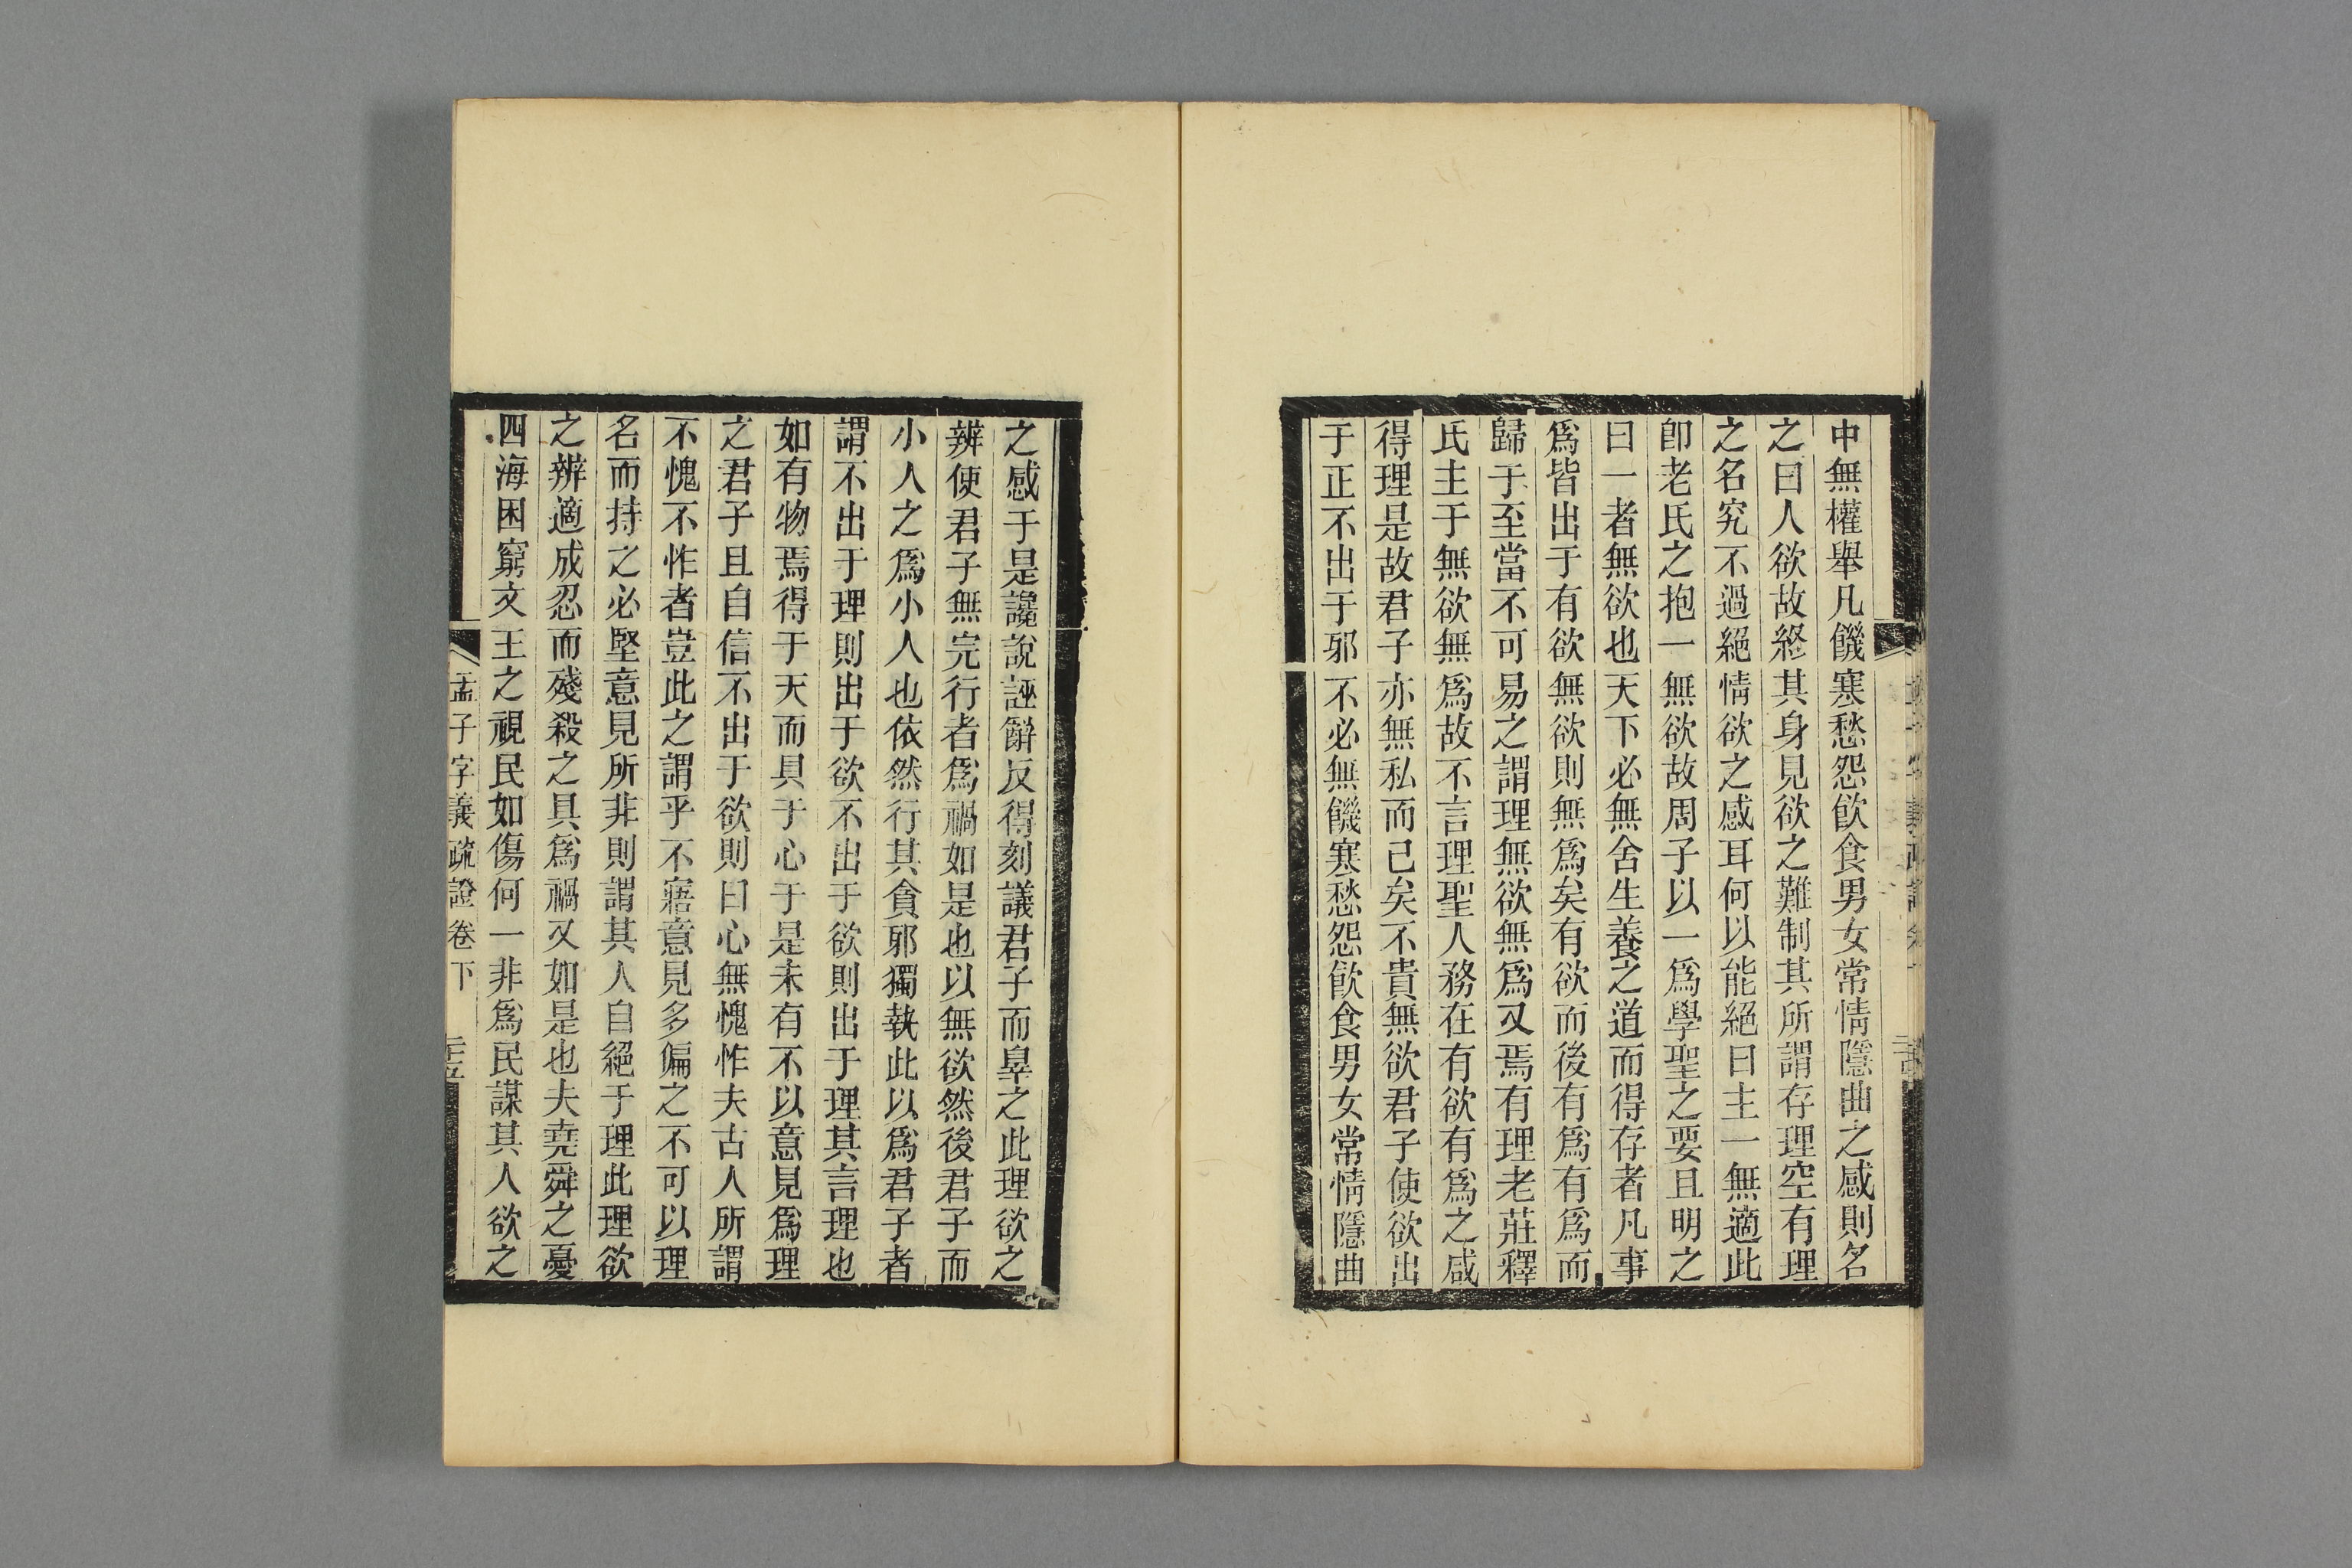 中無權舉凡饑寒愁怨飮食男女常情隱曲之感則名
之曰人欲故終其身見欲之難制其所謂存理空有理
之名究不過絕情欲之感耳何以能絕曰主一無適此
卽老氏之抱一無欲故周子以一爲學聖之要且明之
曰一者無欲也天下必無舍生養之道而得存者凡事
爲皆出于有欲無欲則無爲矣有欲而後有爲有爲而
歸于至當不可易之謂理無欲無爲又焉有理老莊釋
氏主于無欲無爲故不言理聖人務在有欲有爲之咸
得理是故君子亦無私而已矣不貴無欲君子使欲出
于正不出于邪不必無饑寒愁怨飮食男女常情隱曲
之感于是讒說誣辭反得刻議君子而辠之此理欲之
辨使君子無完行者爲禍如是也以無欲然後君子而
小人之爲小人也依然行其貪邪獨執此以爲君子者
謂不出于理則出于欲不出于欲則出于理其言理也
如有物焉得于天而具于心于是未有不以意見爲理
之君子且自信不出于欲則曰心無愧怍夫古人所謂
不愧不怍者豈此之謂乎不寤意見多偏之不可以理
名而持之必堅意見所非則謂其人自絕于理此理欲
之辨適成忍而殘殺之具爲禍又如是也夫堯舜之憂
四海困窮文王之視民如傷何一非爲民謀其人欲之
孟子字義疏證卷下